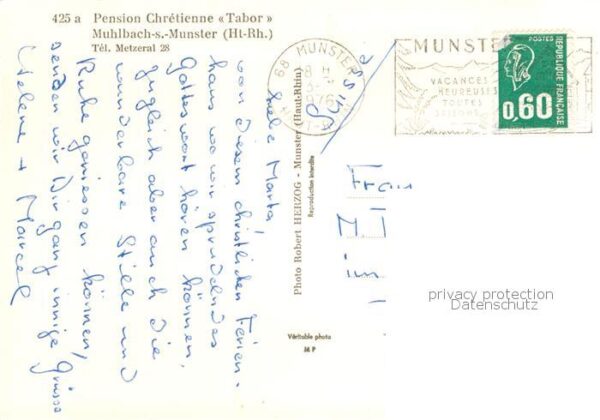 425 a Pension Chrétienne « Tabor »
Muhlbach-s.-Munster (Ht-Rh.)
Tél. Metzeral 28
Liebe Marta,
von diesem christlichen Ferien-
haus wo wir sprudelndes
Gotteswort hören können,
zugleich aber auch die
wunderbare Stille und
Ruhe geniessen können,
senden wir Dir ganz innige Grüsse
Helene + Marcel
Photo Robert HERZOG - Munster (Haut-Rhin)
Reproduction interdite
Véritable photo
M P
68 MUNSTER
MUNSTER
VACANCES
HEUREUSES
TOUTES
SAISONS
POSTES
0,60
REPUBLIQUE FRANÇAISE
Frau
M. T
im
privacy protection
Datenschutz